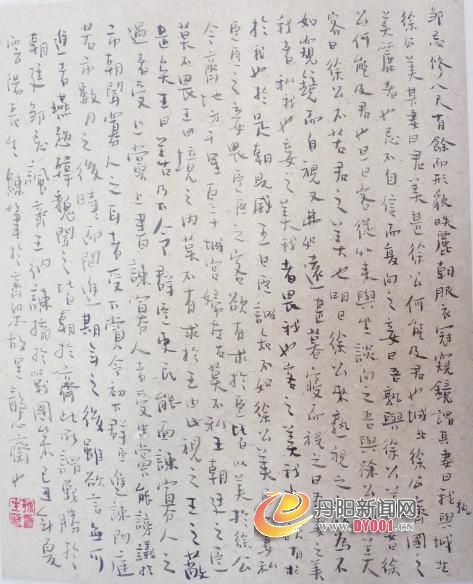 邹忌修八尺有餘而形貌昳麗朝服衣冠窺鏡謂其妻曰我孰與城北
徐公美其妻曰君美甚徐公何能及君也城北徐公齊國之
美麗者也忌不自信而復問之妾曰吾孰與徐公美妾曰徐
公何能及君也旦日客從外來與坐談問之吾與徐公孰美
客曰徐公不若君之美也明日徐公來熟視之自以為不
如窺鏡而自視又弗如遠甚暮寢而思之曰吾妻之美
我者私我也妾之美我者畏我也客之美我者欲有求
於我也於是朝見威王曰臣誠知不如徐公美臣之妻私
臣臣之妾畏臣臣之客欲有求於臣皆以美於徐公
今齊地方千里百二十城宮婦左右莫不私王朝廷之臣
莫不畏王四境之内莫不有求於王由此視之王之蔽
甚矣王曰善乃下令群臣吏民能面諫寡人之
過者受上賞上書諫寡人者受中賞能謗議於
市朝聞寡人之耳者受下賞令初下群臣進諫門庭
若市數月之後時時而間進期年之後雖欲言無可
進者燕趙韓魏聞之皆朝於齊此所謂戰勝於
朝廷鄒忌諷齊王納諫摘於戰國策己丑年夏
雲陽長生書於齊梁故里靜心齋也
丹阳新闻网
WWW.DY001.CN